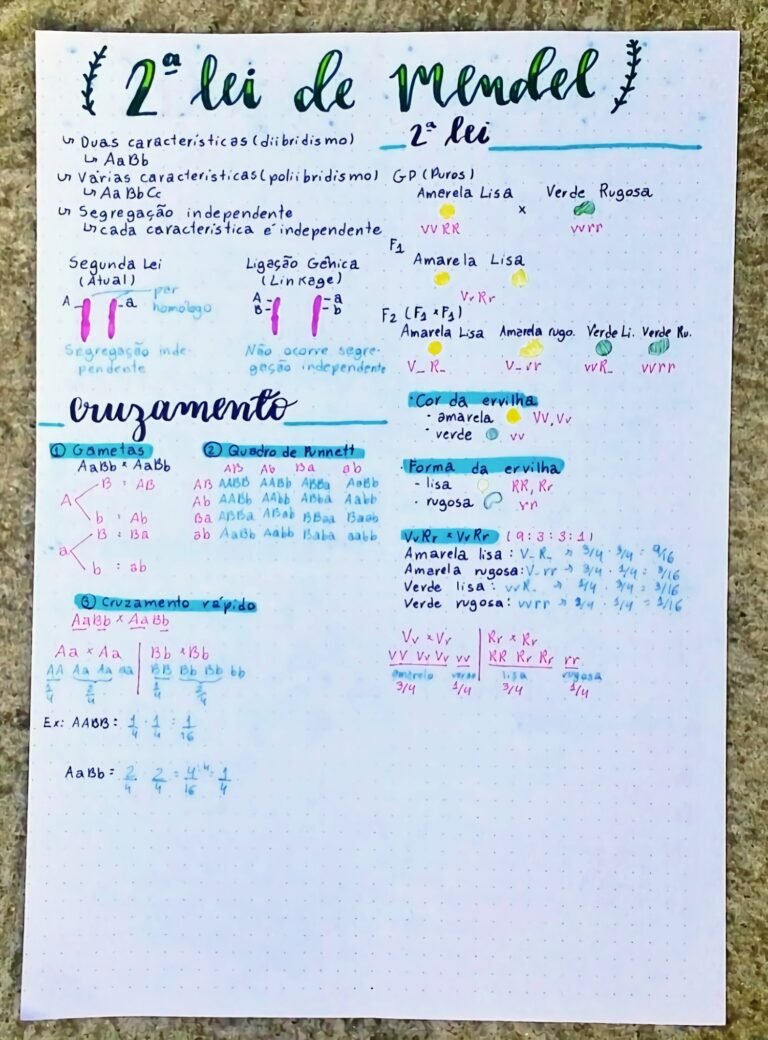 2ª lei de Mendel
↳ Duas características (diibridismo)
↳ AaBb
↳ Várias características (poliibridismo)
↳ AaBbCc
↳ Segregação independente
↳ cada característica é independente
Segunda Lei
(Atual)
A
a
par
homólogo
Segregação inde-
pendente
Ligação Gênica
(Linkage)
A
B
a
b
Não ocorre segre-
gação independente
cruzamento
① Gametas
AaBb × AaBb
A
B = AB
b = Ab
a
B = Ba
b = ab
② Quadro de Punnett
AB Ab Ba ab
AB AABB AABb ABBa AaBb
Ab AABb AAbb ABba Aabb
Ba ABBa ABab BBaa Baab
ab AaBb Aabb Baba aabb
③ Cruzamento rápido
AaBb × AaBb
Aa × Aa | Bb × Bb
AA Aa Aa aa | BB Bb Bb bb
1/4 2/4 1/4 2/4
Ex: AABB = 1/4 · 1/4 = 1/16
AaBb = 2/4 · 2/4 = 4/16 :4 = 1/4
2ª lei
GP (Puros)
Amarela Lisa × Verde Rugosa
VVRR vvrr
F1
Amarela Lisa
VvRr
F2 (F1 × F1)
Amarela Lisa Amarela rugo. Verde Li. Verde Ru.
V_R_ V_rr vvR_ vvrr
· Cor da ervilha
- amarela VV, Vv
- verde vv
· Forma da ervilha
- lisa RR, Rr
- rugosa rr
VvRr × VvRr (9:3:3:1)
Amarela lisa: V_R_ → 3/4 · 3/4 = 9/16
Amarela rugosa: V_rr → 3/4 · 1/4 = 3/16
Verde lisa: vvR_ → 1/4 · 3/4 = 3/16
Verde rugosa: vvrr → 1/4 · 1/4 = 1/16
Vv × Vv | Rr × Rr
VV Vv Vv vv | RR Rr Rr rr
amarelo verde lisa rugosa
3/4 1/4 3/4 1/4